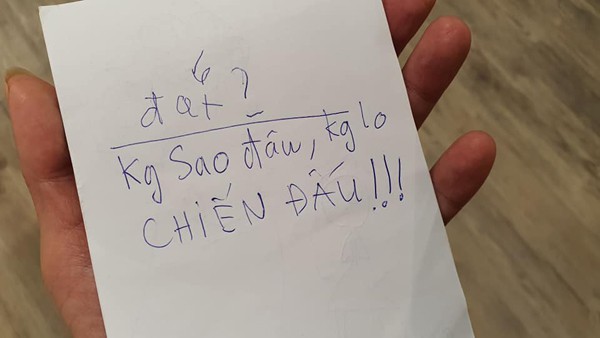 Kg Sao đâu, kg lo
CHIẾN ĐẤU!!!